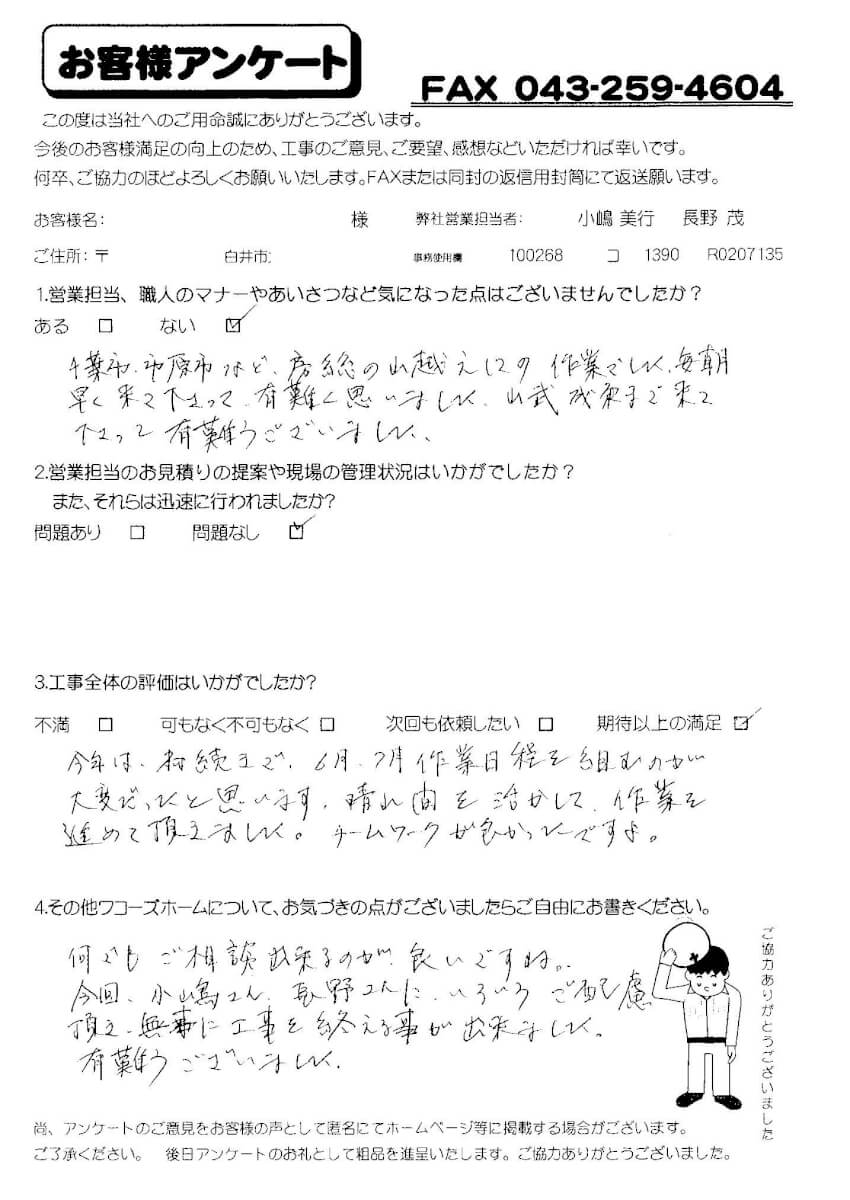 お客様アンケート
FAX 043-259-4604
この度は当社へのご用命誠にありがとうございます。
今後のお客様満足の向上のため、工事のご意見、ご要望、感想などいただければ幸いです。
何卒、ご協力のほどよろしくお願いいたします。FAXまたは同封の返信用封筒にて返送願います。
お客様名: 様 弊社営業担当者: 小嶋 美行 長野 茂
ご住所:〒 白井市 事務使用欄 100268 コ 1390 R0207135
1.営業担当、職人のマナーやあいさつなど気になった点はございませんでしたか?
ある □ ない ☑
千葉市、市原市など、房総の山越えての作業でした、毎朝
早く来て下さって、有難く思いました、山武成東まで来て
下さって有難うございました、
2.営業担当のお見積りの提案や現場の管理状況はいかがでしたか?
また、それらは迅速に行われましたか?
問題あり □ 問題なし ☑
3.工事全体の評価はいかがでしたか?
不満 □ 可もなく不可もなく □ 次回も依頼したい □ 期待以上の満足 ☑
今年は、持続まで、6月、7月作業日程を組むのが
大変だったと思います、晴れ間を活かして、作業を
進めて頂きました。チームワークが良かったですよ。
4.その他ワコーズホームについて、お気づきの点がございましたらご自由にお書きください。
何でもご相談出来るのが良いですね。
今回、小嶋さん、長野さんに、いろいろご配慮
頂き、無事に工事を終える事が出来ました。
有難うございました.
ご協力ありがとうございました
尚、アンケートのご意見をお客様の声として匿名にてホームページ等に掲載する場合がございます。
ご了承ください。 後日アンケートのお礼として粗品を進呈いたします。ご協力ありがとうございました。